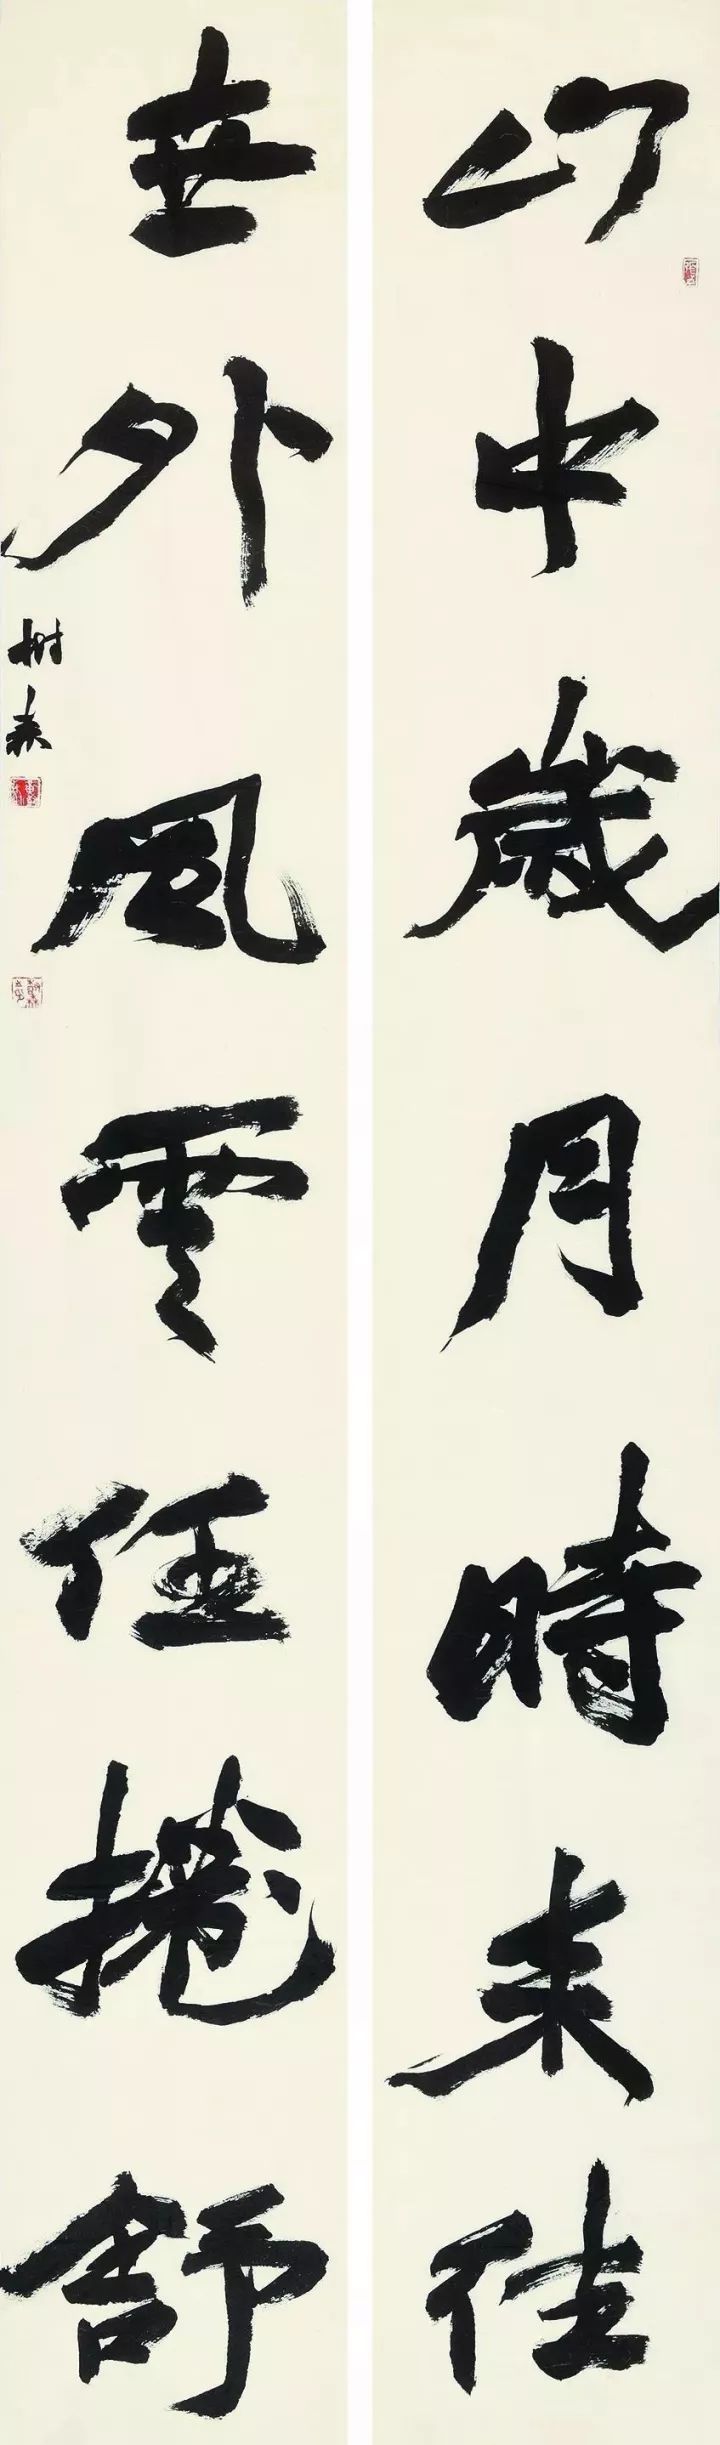 山中歲月時來往
世外風雲任捲舒
樹森